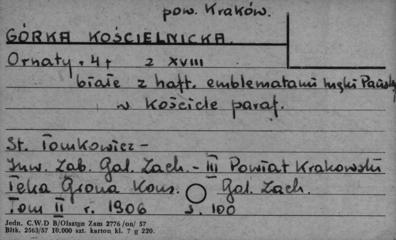 pow. Kraków.
GÓRKA KOŚCIELNICKA.
Ornaty. 4 z XVIII
białe z haft. emblematami męki Pańskiej
w kościele paraf.
St. Tomkowicz -
Inw. Zab. Gal. Zach. - III Powiat Krakowski
Teka Grona Kons. Gal. Zach.
Tom II r. 1906 s. 100
Jedn. C.W.D B/Olsztyn Zam 2776/on/57
Bltk. 2563/57 10.000 szt. karton kl. 7 g 220.